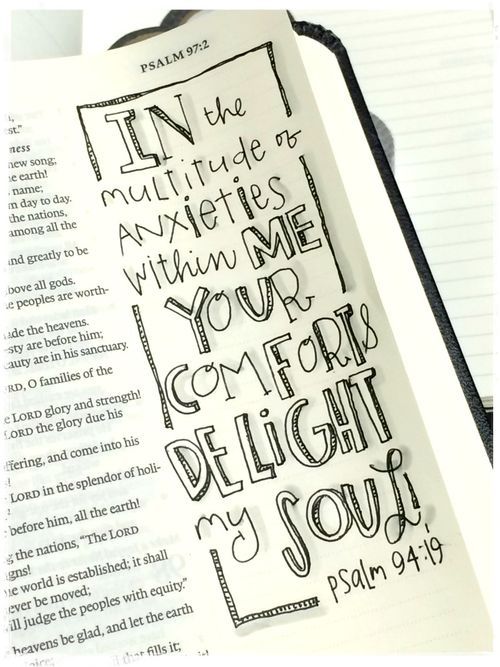 PSALM 97:2
st."
ness
new song;
e earth!
name;
m day to day.
the nations,
among all the
nd greatly to be
bove all gods.
e peoples are worth-
ade the heavens.
sty are before him;
auty are in his sanctuary.
RD, O families of the
e LORD glory and strength!
LORD the glory due his
ffering, and come into his
LORD in the splendor of holi-
before him, all the earth!
g the nations, "The LORD
igns!
e world is established; it shall
ever be moved;
ill judge the peoples with equity."
heavens be glad, and let the earth
that fills it;
IN the
multitude of
ANXieties
within ME
YOUR
COMFORTS
DELiGHT
my SOUL!
psalm 94:19